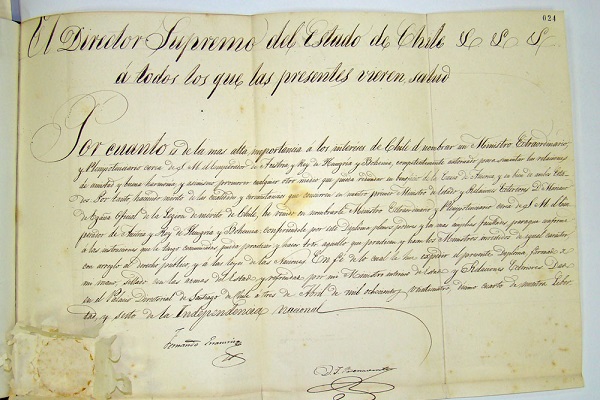 024
El Director Supremo del Estado de Chile &. &. &.
á todos los que las presentes vieren, salud
Por cuanto es de la mas alta importancia a los intereses de Chile el nombrar un Ministro Extraordinario,
y Plenipotenciario cerca de S. M. el Emperador de Austria y Rey de Hungria y Bohemia, competentemente autorizado para las relaciones
de amistad y buena harmonia, y asimismo promover cualquier otro que pueda en beneficio de la y en bien de ambos
Por tanto, haviendo merito de las cualidades y circunstancias que concurren en nuestro primer Ministro de Estado y Relaciones Exteriores D. Mariano
de Egaña Oficial de la Legion de merito de Chile, he venido en nombrarle Ministro Extraordinario y Plenipotenciario cerca de S. M. el Em-
perador de Austria y Rey de Hungria y Bohemia, confiriendole por este Diploma plenos poderes y las mas amplias facultades para que conforme
a las instrucciones que le tengo comunicadas pueda practicar y haga todo aquello que practican y hacen los Ministros de igual caracter,
con arreglo al derecho publico, y a las leyes de las Naciones. En fé de lo cual le hice expedir el presente diploma, firmado de
mi mano, sellado con las armas del Estado y refrendado por mi Ministro interino de Estado y Relaciones Exteriores. Dado
en el Palacio Directorial de Santiago de Chile a tres de Abril de mil ochocientos veinticuatro, decimo cuarto de nuestra Liber-
tad, y sesto de la Independencia Nacional